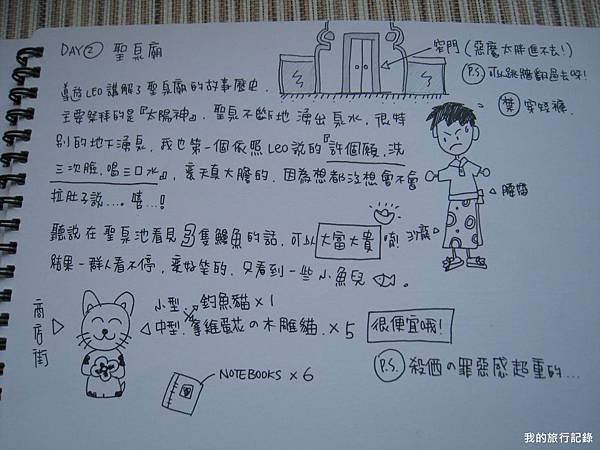 DAY② 聖泉廟
窄門(惡魔太胖進不去!)
P.S 可以跳牆翻過去呀!
禁 穿短褲.
導遊LEO講解了聖泉廟的故事歷史.
主要祭拜的是『太陽神』, 聖泉不斷地湧出泉水, 很特
別的地下湧泉, 我也第一個依照Leo說的『許個願, 洗
三次臉, 喝三口水』, 衰天真大膽的, 因為想都沒想會不會
拉肚子說.... 嘻...!
腰帶
沙龍
聽說在聖泉池看見3隻鰻魚的話, 可以大富大貴唷!
結果一群人看不停, 蠻好笑的, 只看到一些小魚兒。
商店街
小型. 釣魚貓×1
中型. 拿雞蛋花の木雕貓.×5 很便宜哦!
NOTEBOOKS × 6
P.S. 殺價の罪惡感超重的...
我的旅行記錄